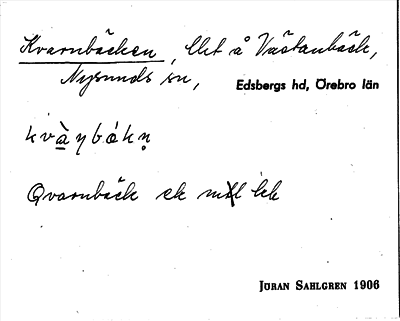 Kvarnbäcken, Ukt å Västanbäck,
Nysunds sn, Edsbergs hd, Örebro län
kvàṇbákṇ
Qvarnbäck ek
JÖRAN SAHLGREN 1906